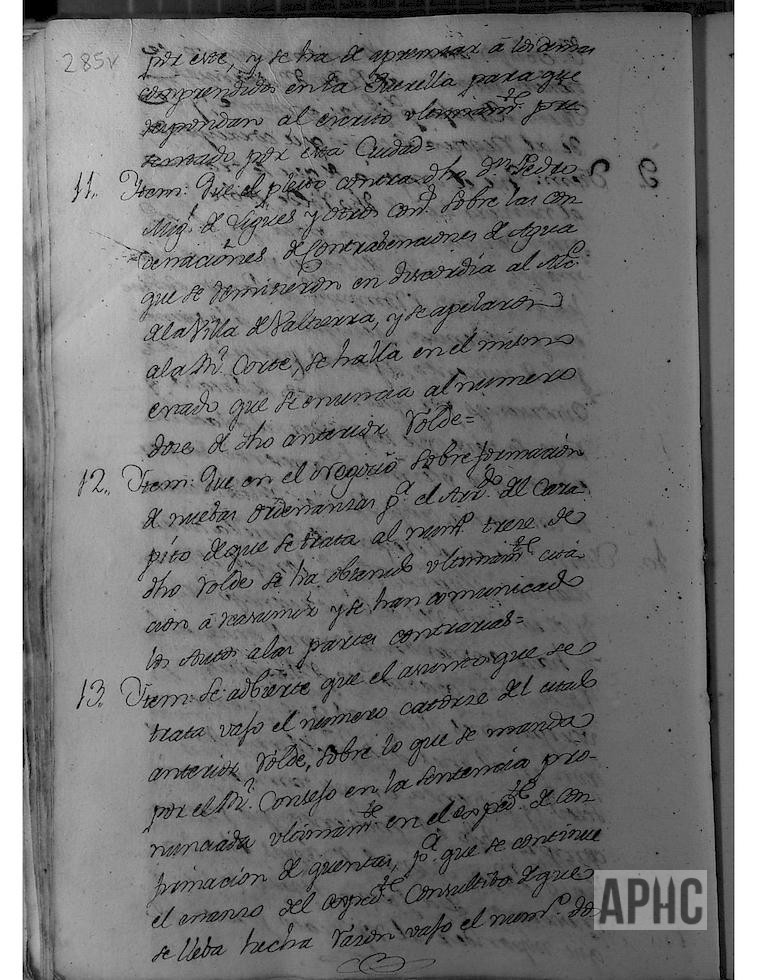 285v
por este, y se ha de apremiar á los demas
comprendidos en la Querella para que
respondan al escrito ultimamte. pre
sentado por esta Ciudad=
11. Ytem: Que el pleito contra dho Dn. Pedro
Migl. de Ligues y otros cont. sobre las con
denaciónes de Contrabenciones de Agua
que se remitieron en discordia al Alce.
de la Villa de Valtierra, y se apelaron
a la Rl. Corte, se halla en el mismo
estado que se enuncia al numero
doze de dho anterior Rolde=
12. Ytem: Que en el Negocio sobre formación
de nuebas ordenanzas pa. el Arrdo. del Cara
pito de que se trata al numo. treze de
dho Rolde se ha obtenido ultimamte. cita
cion á resumir y se han comunicado
los Autos a las partes contrarias=
13. Ytem: Se adbierte que el asunto que se
trata vajo el número catorze del citado
anterior Rolde, sobre lo que se manda
por el Rl. Consejo en la Sentencia pro-
nunciada ultimamte. en el expedte. de con
firmacion de quentas, pa. que se continue
el del expedte. Consultibo de que
se lleba hecha razon vajo el numo. dos
APHC